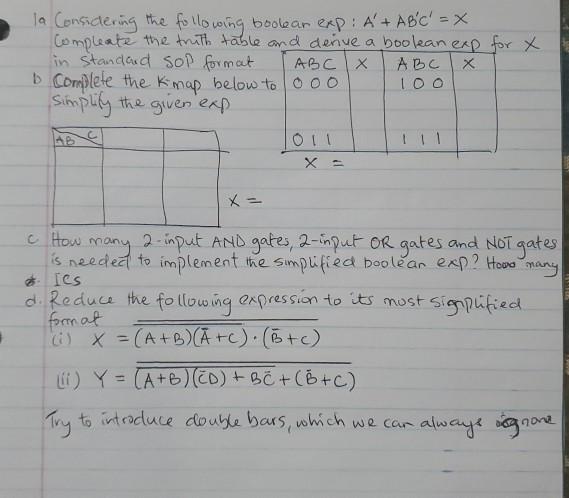 1a Considering the following boolean exp: A' + AB'C' = X
Compleate the truth table and derive a boolean exp for X
in Standard SOP format
A B C X A B C X
0 0 0 1 0 0
0 1 1 1 1 1
X =
b Complete the K map below to
Simplify the given exp
AB C
X =
c How many 2-input AND gates, 2-input OR gates and NOT gates
is needed to implement the simplified boolean exp? How many
ICs
d. Reduce the following expression to its most signplified
format
(i) X = \overline{\overline{(A+B)(\bar{A}+C)}·(\bar{B}+C)}
(ii) Y = \overline{\overline{(A+B)(\bar{C}D)+B\bar{C}}+(\bar{B}+C)}
Try to introduce double bars, which we can always ignore